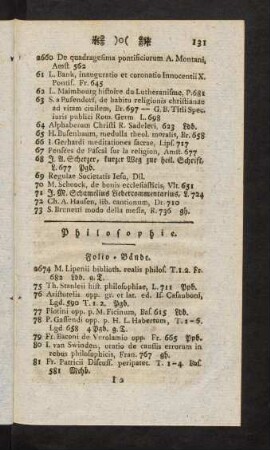 )o( 131
2660 De quadragesima pontificiorum A. Montani,
Amst 562
61 L. Bank, inauguratio et coronatio Innocentii X.
Pontif. Fr. 645
62 L. Maimbourg histoire du Lutheranisme. P. 681
63 S. a Pufendorf, de habitu religionis christianae
ad vitam civilem, Br. 697 — G. B. Titii Spec.
iuris publici Rom. Germ L. 698
64 Alphabetum Christi R. Sadeleri. 623 Ldb.
65 H. Busenbaum, medulla theol. moralis, Br. 658
66 I. Gerhardi meditationes sacrae, Lips. 717
67 Pensées de Pascal sur la religion, Amst. 677
68 J. A. Scherzer, kurzer Weg zur heil. Schrift,
L. 677 Pgb.
69 Regulae Societatis Iesu, Dil.
70 M. Schenck, de bonis ecclesiasticis, Vlt. 651
71 J. M. Schamelius Liedercommentarius, L. 724
72 Ch. A. Hausen, lib. cantionum, Dr. 710
73 S. Brunetti modo della messe, R. 736 gb.
Philosophie.
Folio-Bände.
2674 M. Lipenii biblioth. realis philos. T. 1. 2. Fr.
682 Ldb. u. T.
75 Th. Stanleii hist. philosophiae, L. 711 Ppb.
76 Aristotelis opp. gr. et lat. ed. If. Casauboni,
Lgd. 590 T. 1. 2 Pgb.
77 Plotini opp. p. M. Ficinum, Bas. 615 Ldb.
78 P. Gassendi opp. p. H. L. Habertum, T. 1-6.
Lgd. 658 4 Pgb. g. T.
79 Fr. Baconi de Verolamio opp. Fr. 665 Ppb.
80 I. van Swinden, oratio de causis errorum in
rebus philosophicis, Fran. 767 gh.
81 Fr. Patricii Discuss. peripatet. T. 1-4. Bas.
581 Mchb.
I 2